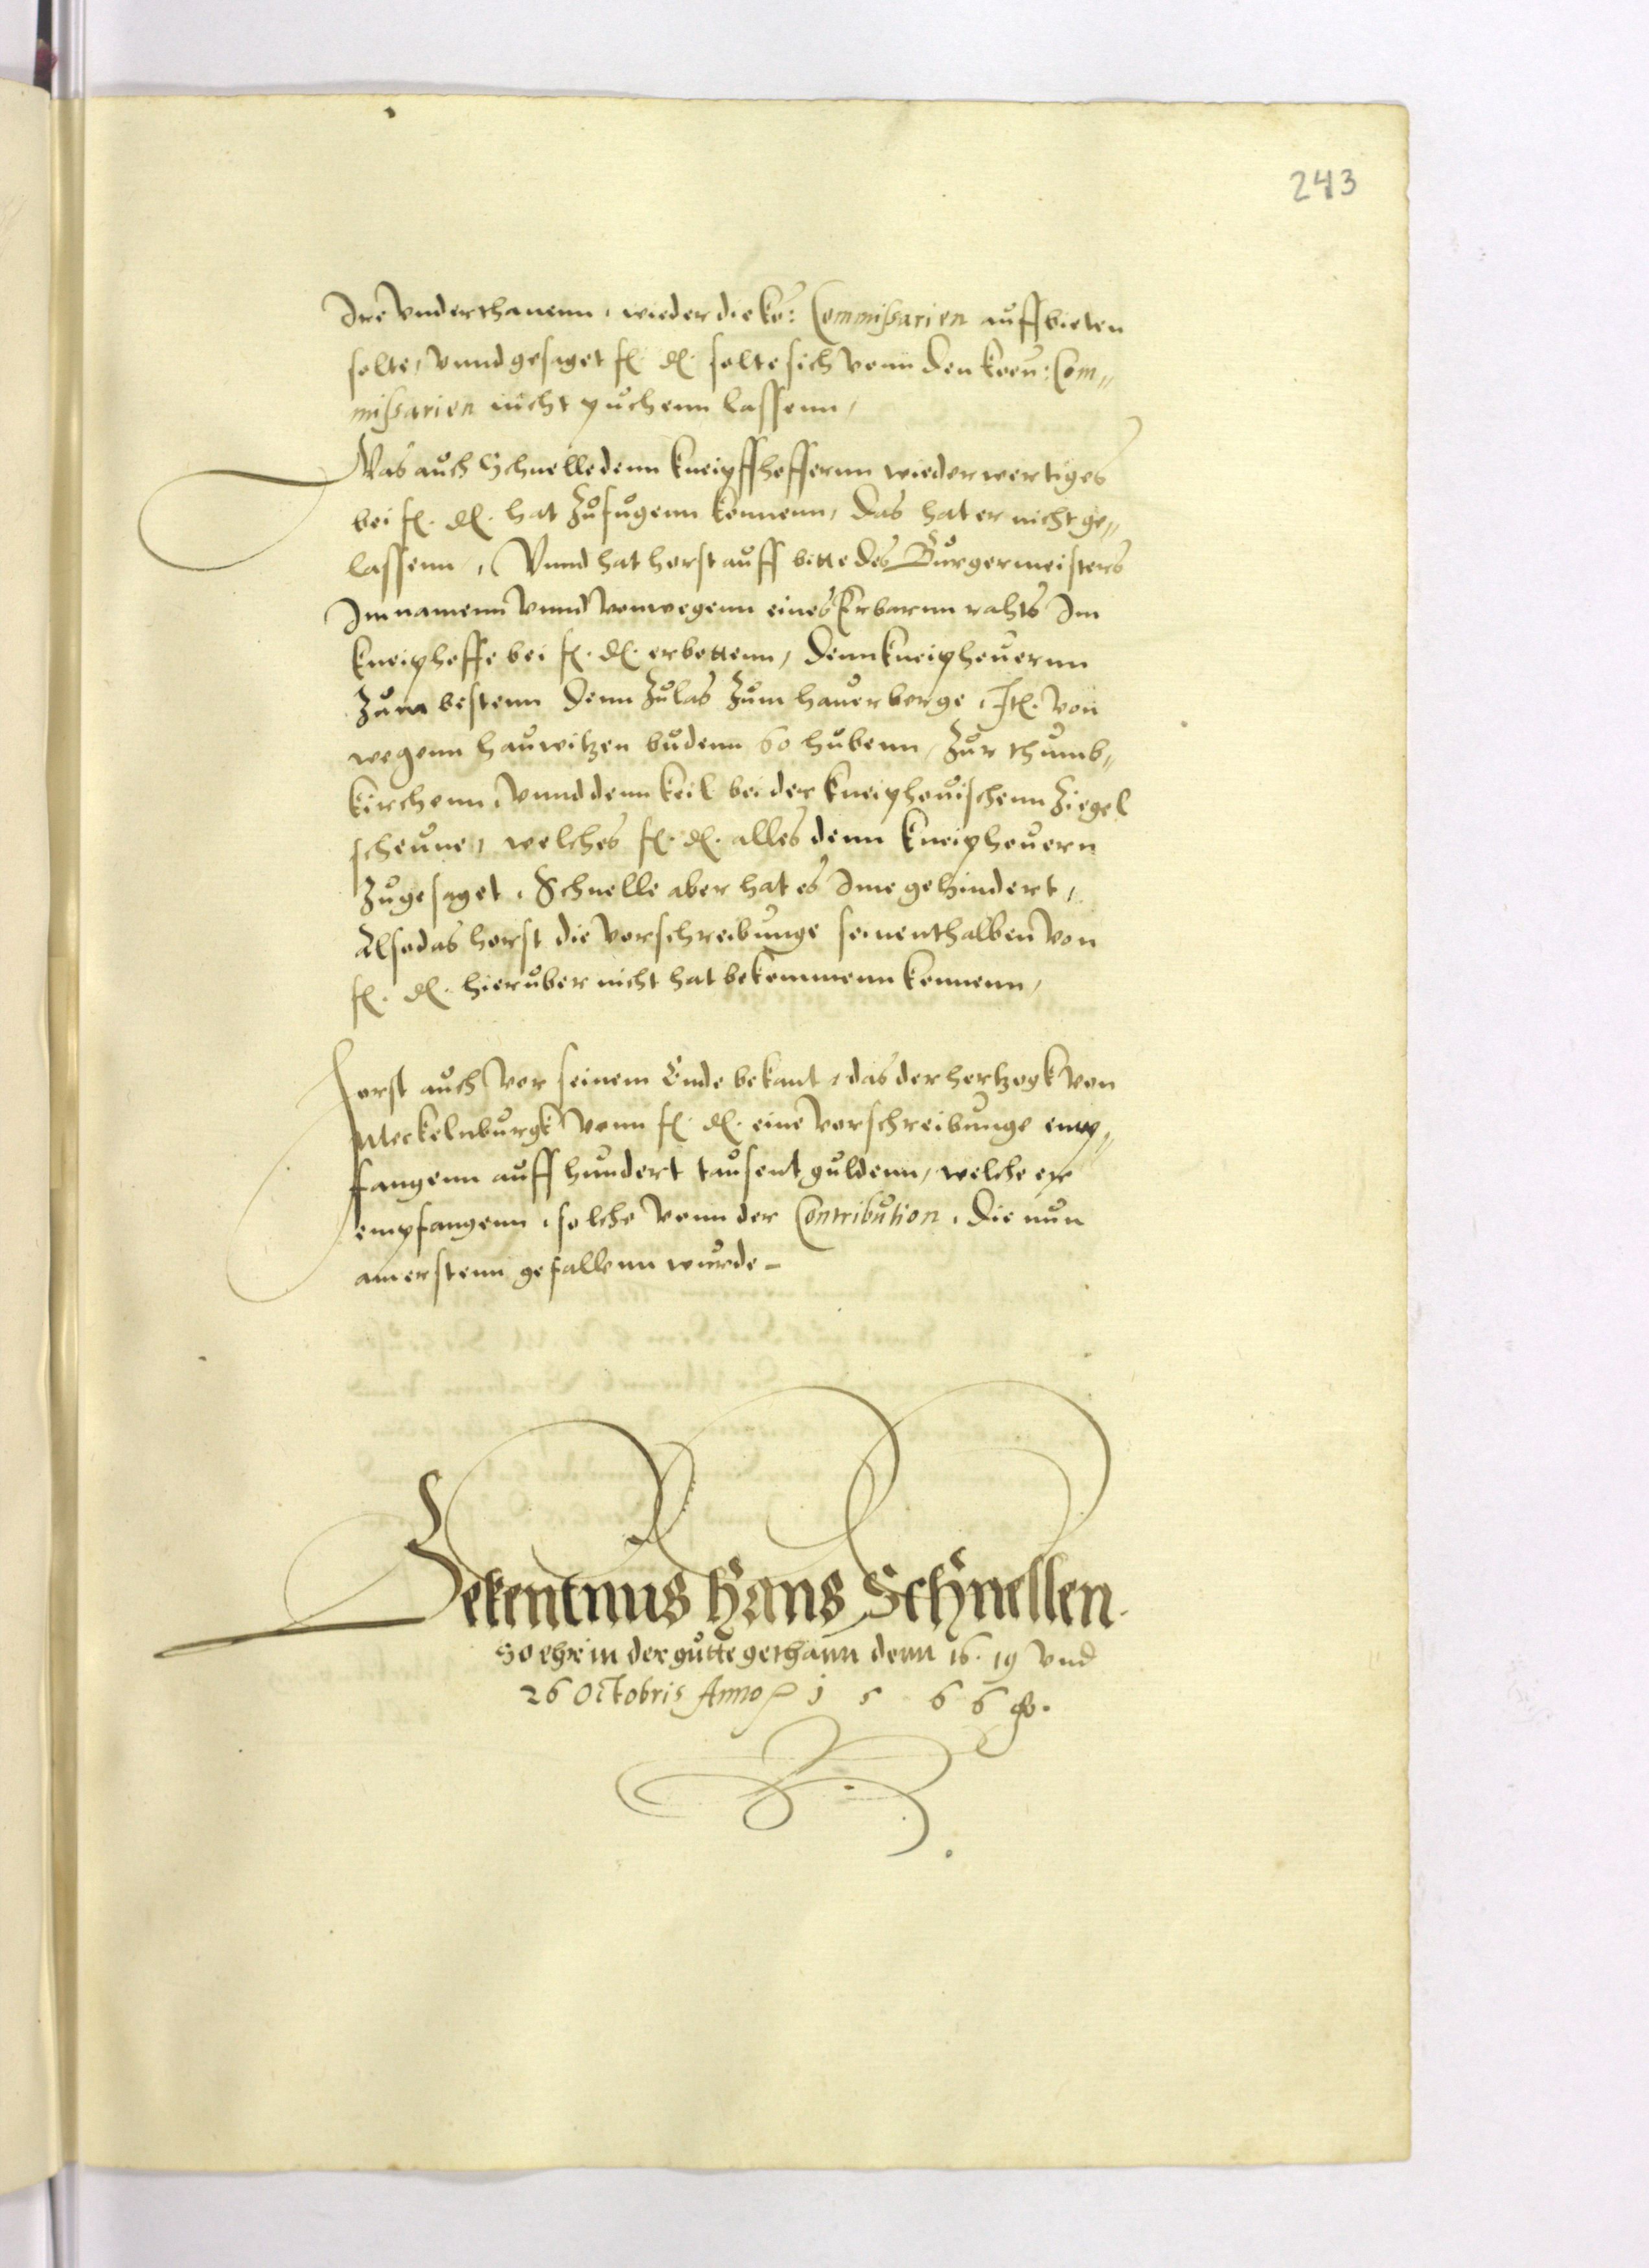 243
Ire Vnderthanenn, wieder die ko: Commißarien auffbieten
solte, Vnnd gesaget f. d. solte sich vonn den kon: Com„
mißarien nicht puchenn lassenn,
Was auch Schnelle denn kneipffhoffernn wiederwertiges
bei f. d. hat zufugenn konnenn, das hat er nicht ge„
lassenn, Vnnd hat horst auff bitte des Burgermeisters
Im namenn Vnnd Vonwegenn eines Erbarnn rahts Im
kneiphoffe bei f. d. erbettenn, denn kneiphouernn
zum bestenn denn zulas zum hauerberge, It. Von
wegenn hauwitzen budenn 60 hubenn, zur thumb„
kirchenn, Vnnd denn keil bei der kneiphouischenn ziegel
scheune, welches f. d. alles denn kneiphouern
zugesaget, Schnelle aber hat es Ime gehindert,
Also das horst die Vorschreibunge seinenthalben Von
f. d. hieruber nicht hat bekommenn konnenn,
Horst auch Vor seinem Ende bekant, das der hertzogk Von
Meckelnburgk Vonn f. d. eine Vorschreibunge emp„
fangenn auff hundert tausent guldenn, welche er
empfangenn, solche Vonn der Contribution, die nun
am erstenn gefallenn wurde -
Bekentnus Hans Schnellen.
So ehr in der gutte gethann denn 16. 19 Vnd
26 Octobris Anno 1 5 6 6